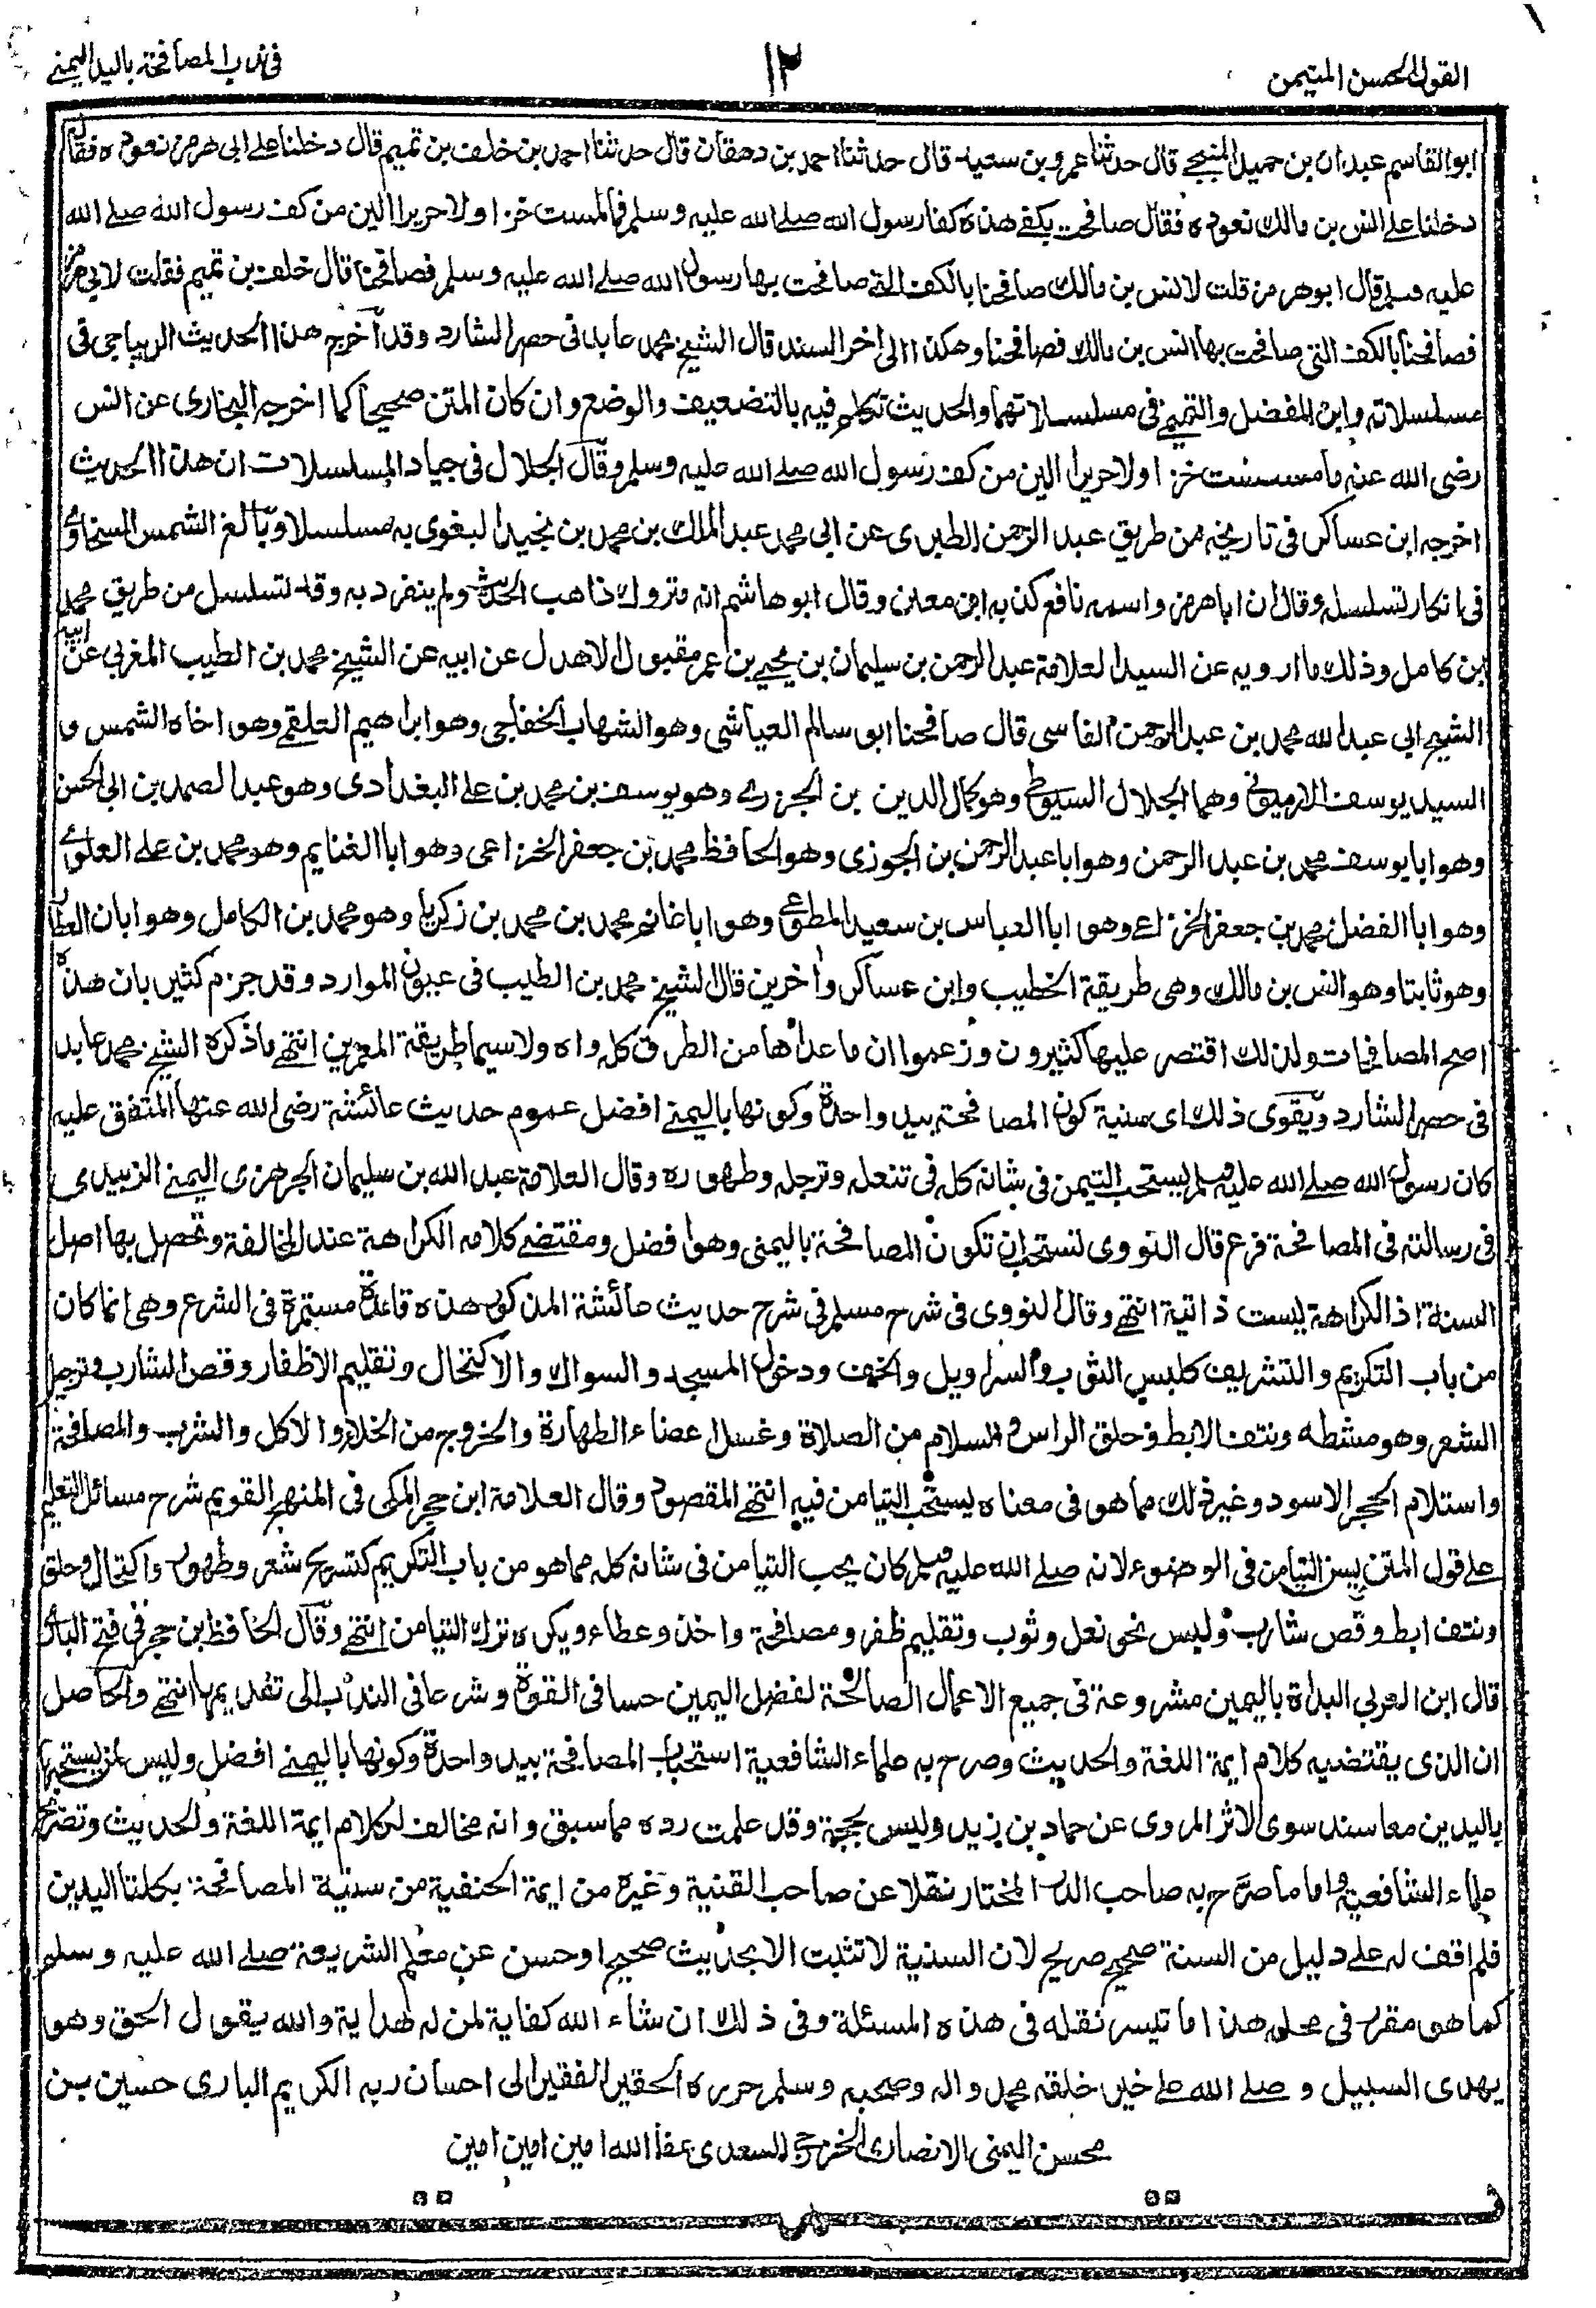 القول الحسن المتيمن
١٢
في ندب المصافحة باليد اليمنى
ابو القاسم عبدان بن حميد المنبجي قال حدثنا عمرو بن سعيد قال حدثنا احمد بن دهقان قال حدثنا احمد بن خلف بن تميم قال دخلنا على ابى هرمز نعوده فقال
دخلنا على انس بن مالك نعوده فقال صافحت بكفى هذه كفا رسول الله صلى الله عليه وسلم فما لمست خزا ولا حريرا الين من كف رسول الله صلى الله
عليه وسلم قال ابو هرمز قلت لانس بن مالك صافحنا بالكف التى صافحت بها رسول الله صلى الله عليه وسلم فصافحنا قال خلف بن تميم فقلت لابى هرمز
فصافحنا بالكف التى صافحت بها انس بن مالك فصافحنا وهكذا الى اخر السند قال الشيخ محمد عابد فى حصر الشارد وقد اخرج هذا الحديث الديباجى فى
مسلسلاته وابن المفضل والتميمى فى مسلسلاتهما والحديث تكلم فيه بالتضعيف والوضع وان كان المتن صحيحا كما اخرجه البخارى عن انس
رضى الله عنه ما مسست خزا ولا حريرا الين من كف رسول الله صلى الله عليه وسلم وقال الجلال فى جياد المسلسلات ان هذا الحديث
اخرجه ابن عساكر فى تاريخه من طريق عبد الرحمن الطبرى عن ابى محمد عبد الملك بن محمد بن نجيد البغوى به مسلسلا وبالغ الشمس السخاوى
فى انكار تسلسله وقال ان ابا هرمز واسمه نافع كذبه ابن معين وقال ابو هاشم انه متروك ذاهب الحديث ولم ينفرد به وقد تسلسل من طريق محمد
بن كامل وذلك ما ارويه عن السيد العلامة عبد الرحمن بن سليمان بن يحيى بن عمر مقبول الاهدل عن ابيه عن الشيخ محمد بن الطيب المغربى عن ابيه
الشيخ ابى عبد الله محمد بن عبد الرحمن الفاسى قال صافحنا ابو سالم العياشى وهو الشهاب الخفاجى وهو ابراهيم العلقمى وهو اخاه الشمس و
السيد يوسف الارميونى وهما الجلال السيوطى وهو كمال الدين بن الجزرى وهو يوسف بن محمد بن على البغدادى وهو عبد الصمد بن ابى الحسن
وهو ابا يوسف محمد بن عبد الرحمن وهو ابا عبد الرحمن بن الجوزى وهو الحافظ محمد بن جعفر الخزاعى وهو ابا الغنايم وهو محمد بن على العلوى
وهو ابا الفضل محمد بن جعفر الخزاعى وهو ابا العباس بن سعيد المطوعى وهو ابا غانم محمد بن محمد بن زكريا وهو محمد بن الكامل وهو ابان العطار
وهو ثابتا وهو انس بن مالك وهى طريقة الخطيب وابن عساكر واخرين قال الشيخ محمد بن الطيب فى عيون الموارد وقد جزم كثير بان هذه
اصح المصافحات ولذلك اقتصر عليها كثيرون وزعموا ان ما عداها من الطرق كله واه ولا سيما طريقة المعمرين انتهى ما ذكره الشيخ محمد عابد
فى حصر الشارد ويقوى ذلك اى سنية كون المصافحة بيد واحدة وكونها باليمنى افضل عموم حديث عائشة رضى الله عنها المتفق عليه
كان رسول الله صلى الله عليه وسلم يستحب التيمن فى شانه كله فى تنعله وترجله وطهوره وقال العلامة عبد الله بن سليمان الجرهزى اليمنى الزبيدى
فى رسالته فى المصافحة فرع قال النووى تستحب ان تكون المصافحة باليمنى وهو افضل ومقتضى كلامه الكراهة عند المخالفة وتحصيل بها اصل
السنة اذ الكراهة ليست ذاتية انتهى وقال النووى فى شرح مسلم فى شرح حديث عائشة المذكور هذه قاعدة مستمرة فى الشرع وهى انما كان
من باب التكريم والتشريف كلبس الثوب والسراويل والخف ودخول المسجد والسواك والاكتحال وتقليم الاظفار وقص الشارب وترجيل
الشعر وهو مشطه ونتف الابط وحلق الراس والسلام من الصلاة وغسل اعضاء الطهارة والخروج من الخلاء والاكل والشرب والمصافحة
واستلام الحجر الاسود وغير ذلك مما هو فى معناه يستحب التيامن فيه انتهى المقصود وقال العلامة ابن حجر المكى فى المنهج القويم شرح مسائل التعليم
على قول المتن يسن التيامن فى الوضوء لانه صلى الله عليه وسلم كان يحب التيامن فى شانه كله مما هو من باب التكريم كتسريح شعر وطهور واكتحال وحلق
ونتف ابط وقص شارب ولبس نحو نعل وثوب وتقليم ظفر ومصافحة واخذ وعطاء ويكره ترك التيامن انتهى وقال الحافظ بن حجر فى فتح البارى
قال ابن العربى البداة باليمين مشروعة فى جميع الاعمال الصالحة لفضل اليمين حسا فى القوة وشرعا فى الندب الى تقديمها انتهى والحاصل
ان الذى يقتضيه كلام ايمة اللغة والحديث وصرح به علماء الشافعية استحباب المصافحة بيد واحدة وكونها باليمنى افضل وليس لمن يستحبها
باليدين معا سند سوى الاثر المروى عن حماد بن زيد وليس بحجة وقد علمت رده مما سبق وانه مخالف لكلام ايمة اللغة والحديث وتصريح
علماء الشافعية واما ما صرح به صاحب الدر المختار نقلا عن صاحب القنية وغيره من ايمة الحنفية من سنية المصافحة بكلتا اليدين
فلم اقف له على دليل من السنة صحيح صريح لان السنية لا تثبت الا بحديث صحيح او حسن عن معلم الشريعة صلى الله عليه وسلم
كما هو مقرر فى محله هذا ما تيسر نقله فى هذه المسئلة وفى ذلك ان شاء الله كفاية لمن له هداية والله يقول الحق وهو
يهدى السبيل و صلى الله على خير خلقه محمد واله وصحبه وسلم حرره الحقير الفقير الى احسان ربه الكريم البارى حسين بن
محسن اليمنى الانصارى الخزرجى السعدى عفا الله امين امين امين